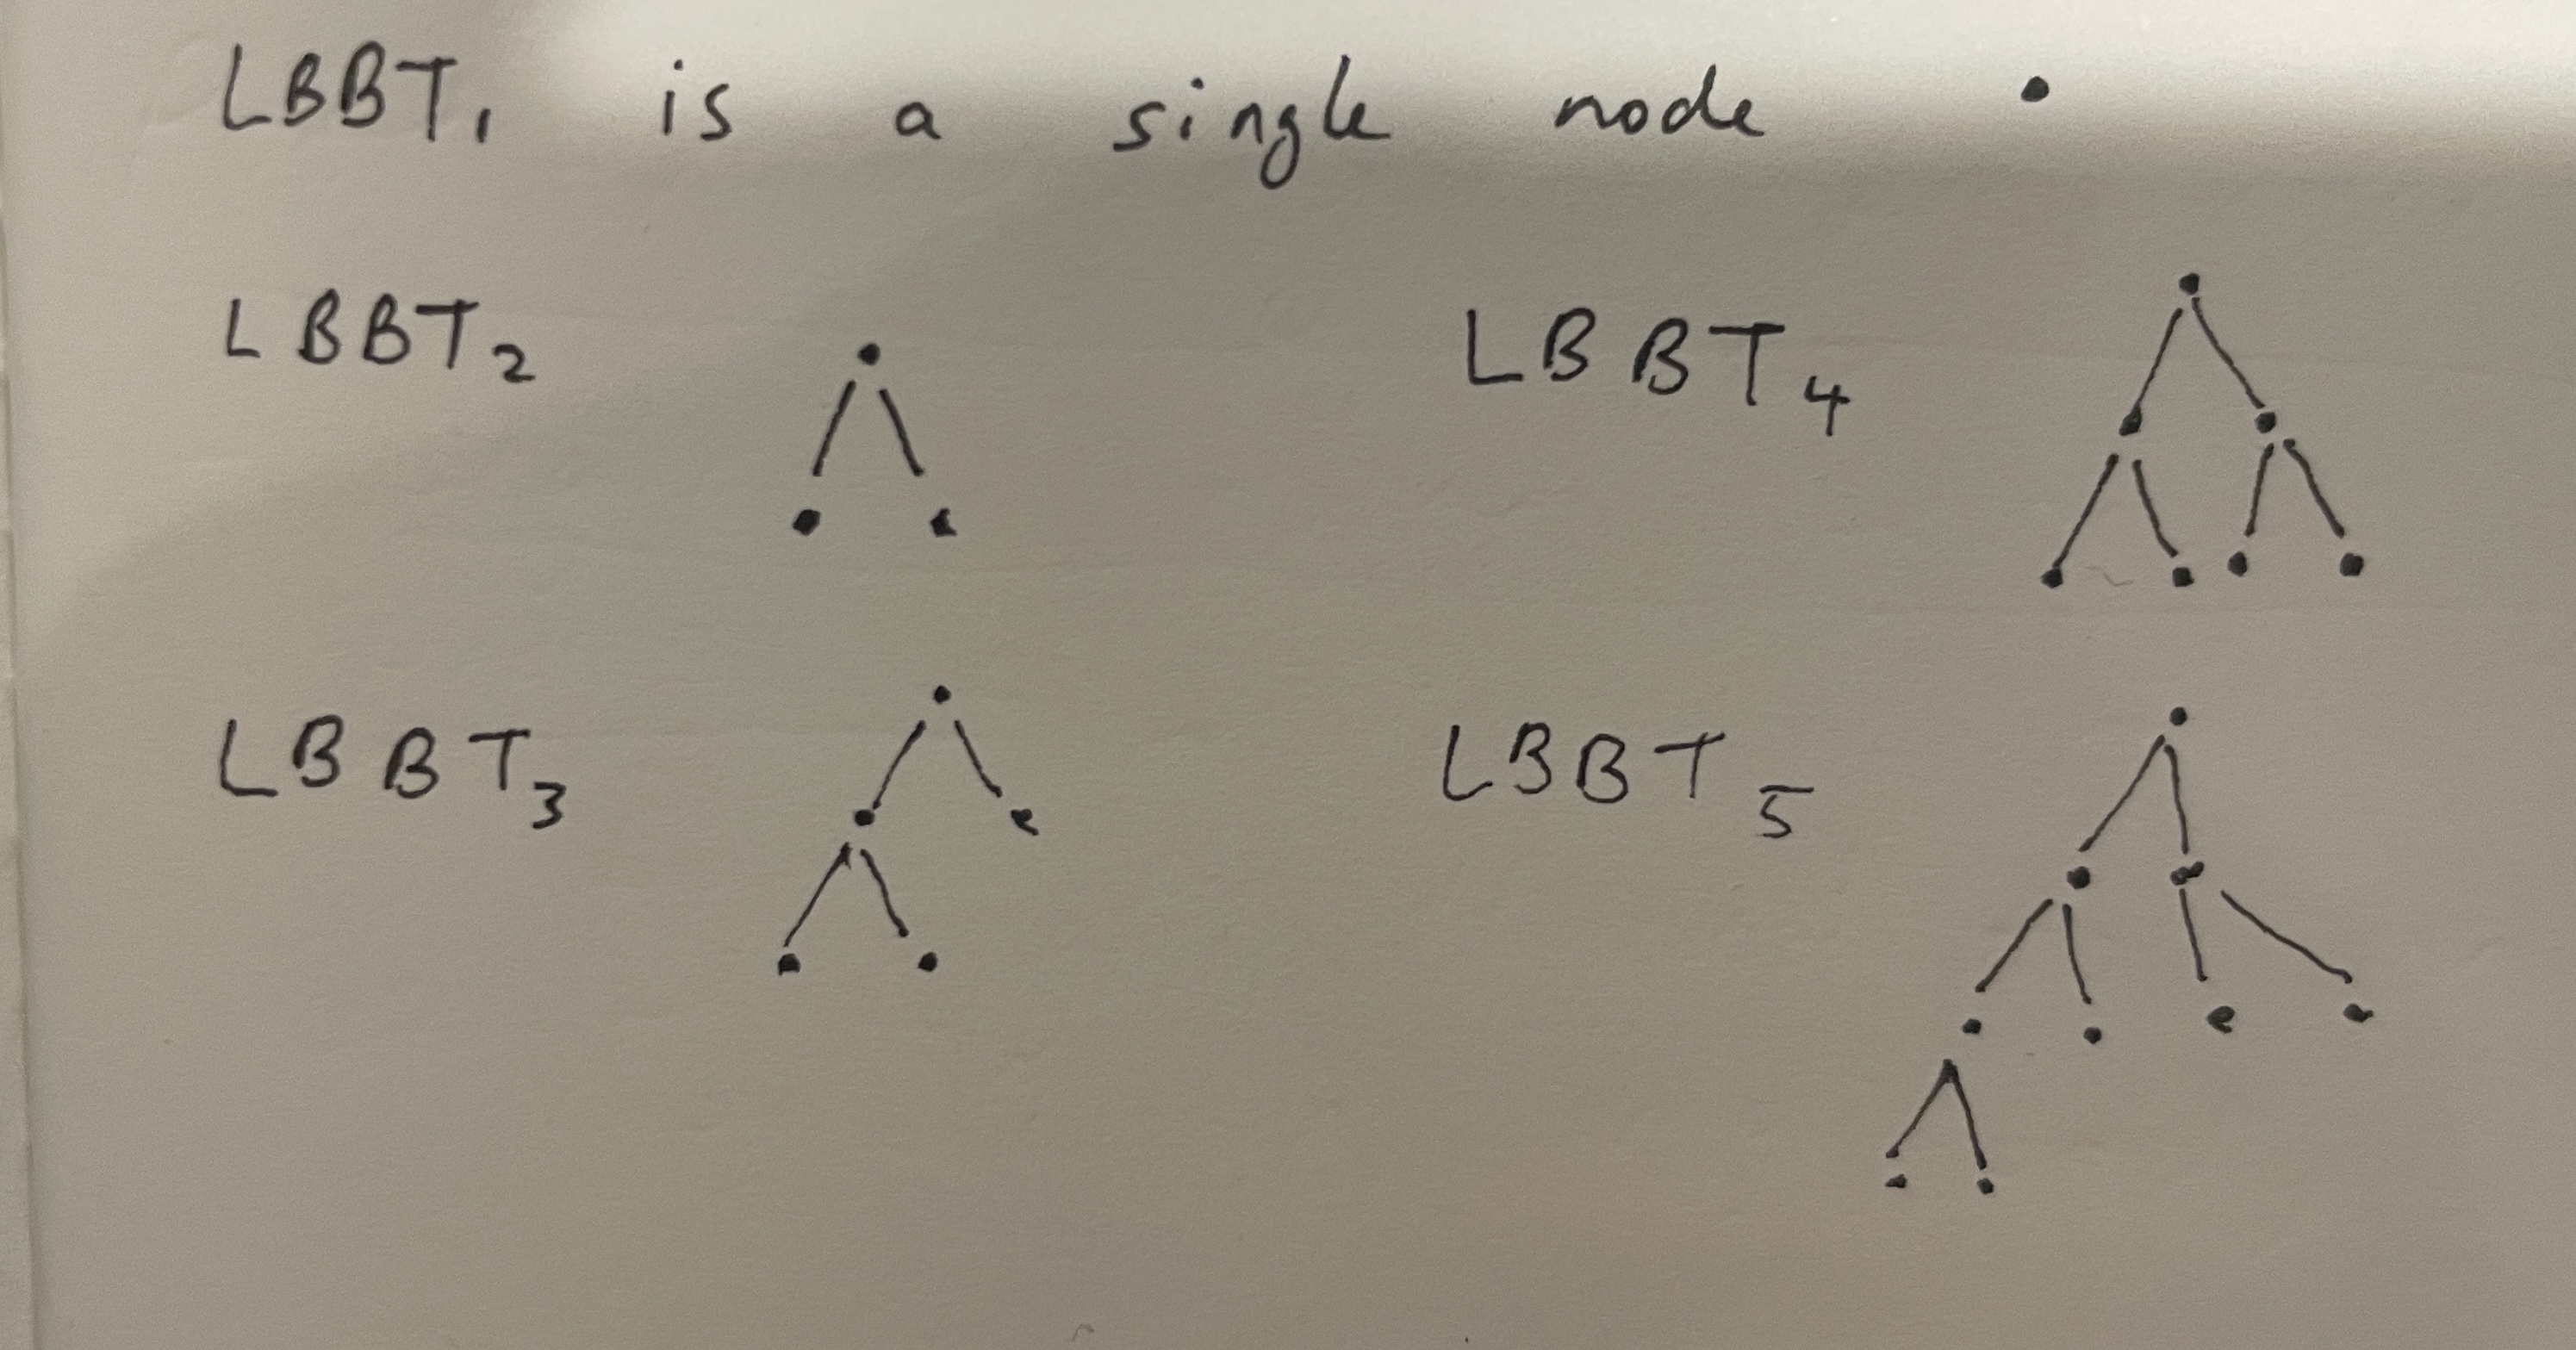 LBBT₁ is a single node
LBBT₂
LBBT₄
LBBT₃
LBBT₅